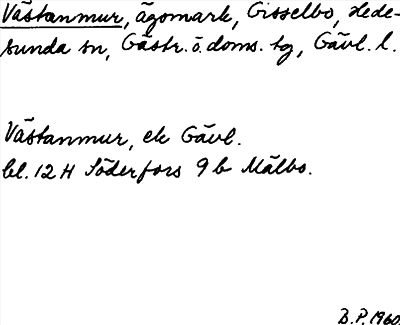 Västanmur, ägomark, Gisselbo, Hede-
sunda sn, Gästr. ö. doms. tg, Gävl. l.
Västanmur, ek Gävl.
bl. 12 H Söderfors 9 b Mälbo.
B.P. 1960.